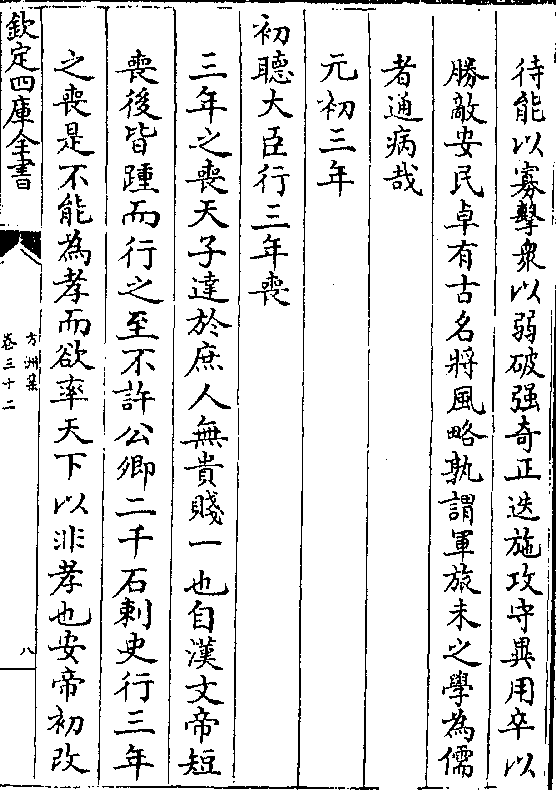 待能以寡擊衆以弱破强奇正迭施攻守異用卒以
勝敵安民卓有古名將風略孰謂軍旅未之學為儒
者通病哉
元初三年
初聽大臣行三年喪
三年之喪天子達於庶人無貴賤一也自漢文帝短
喪後皆踵而行之至不許公卿二千石刺史行三年
之喪是不能為孝而欲率天下以非孝也安帝初改
欽定四庫全書
方洲集
卷三十二
八